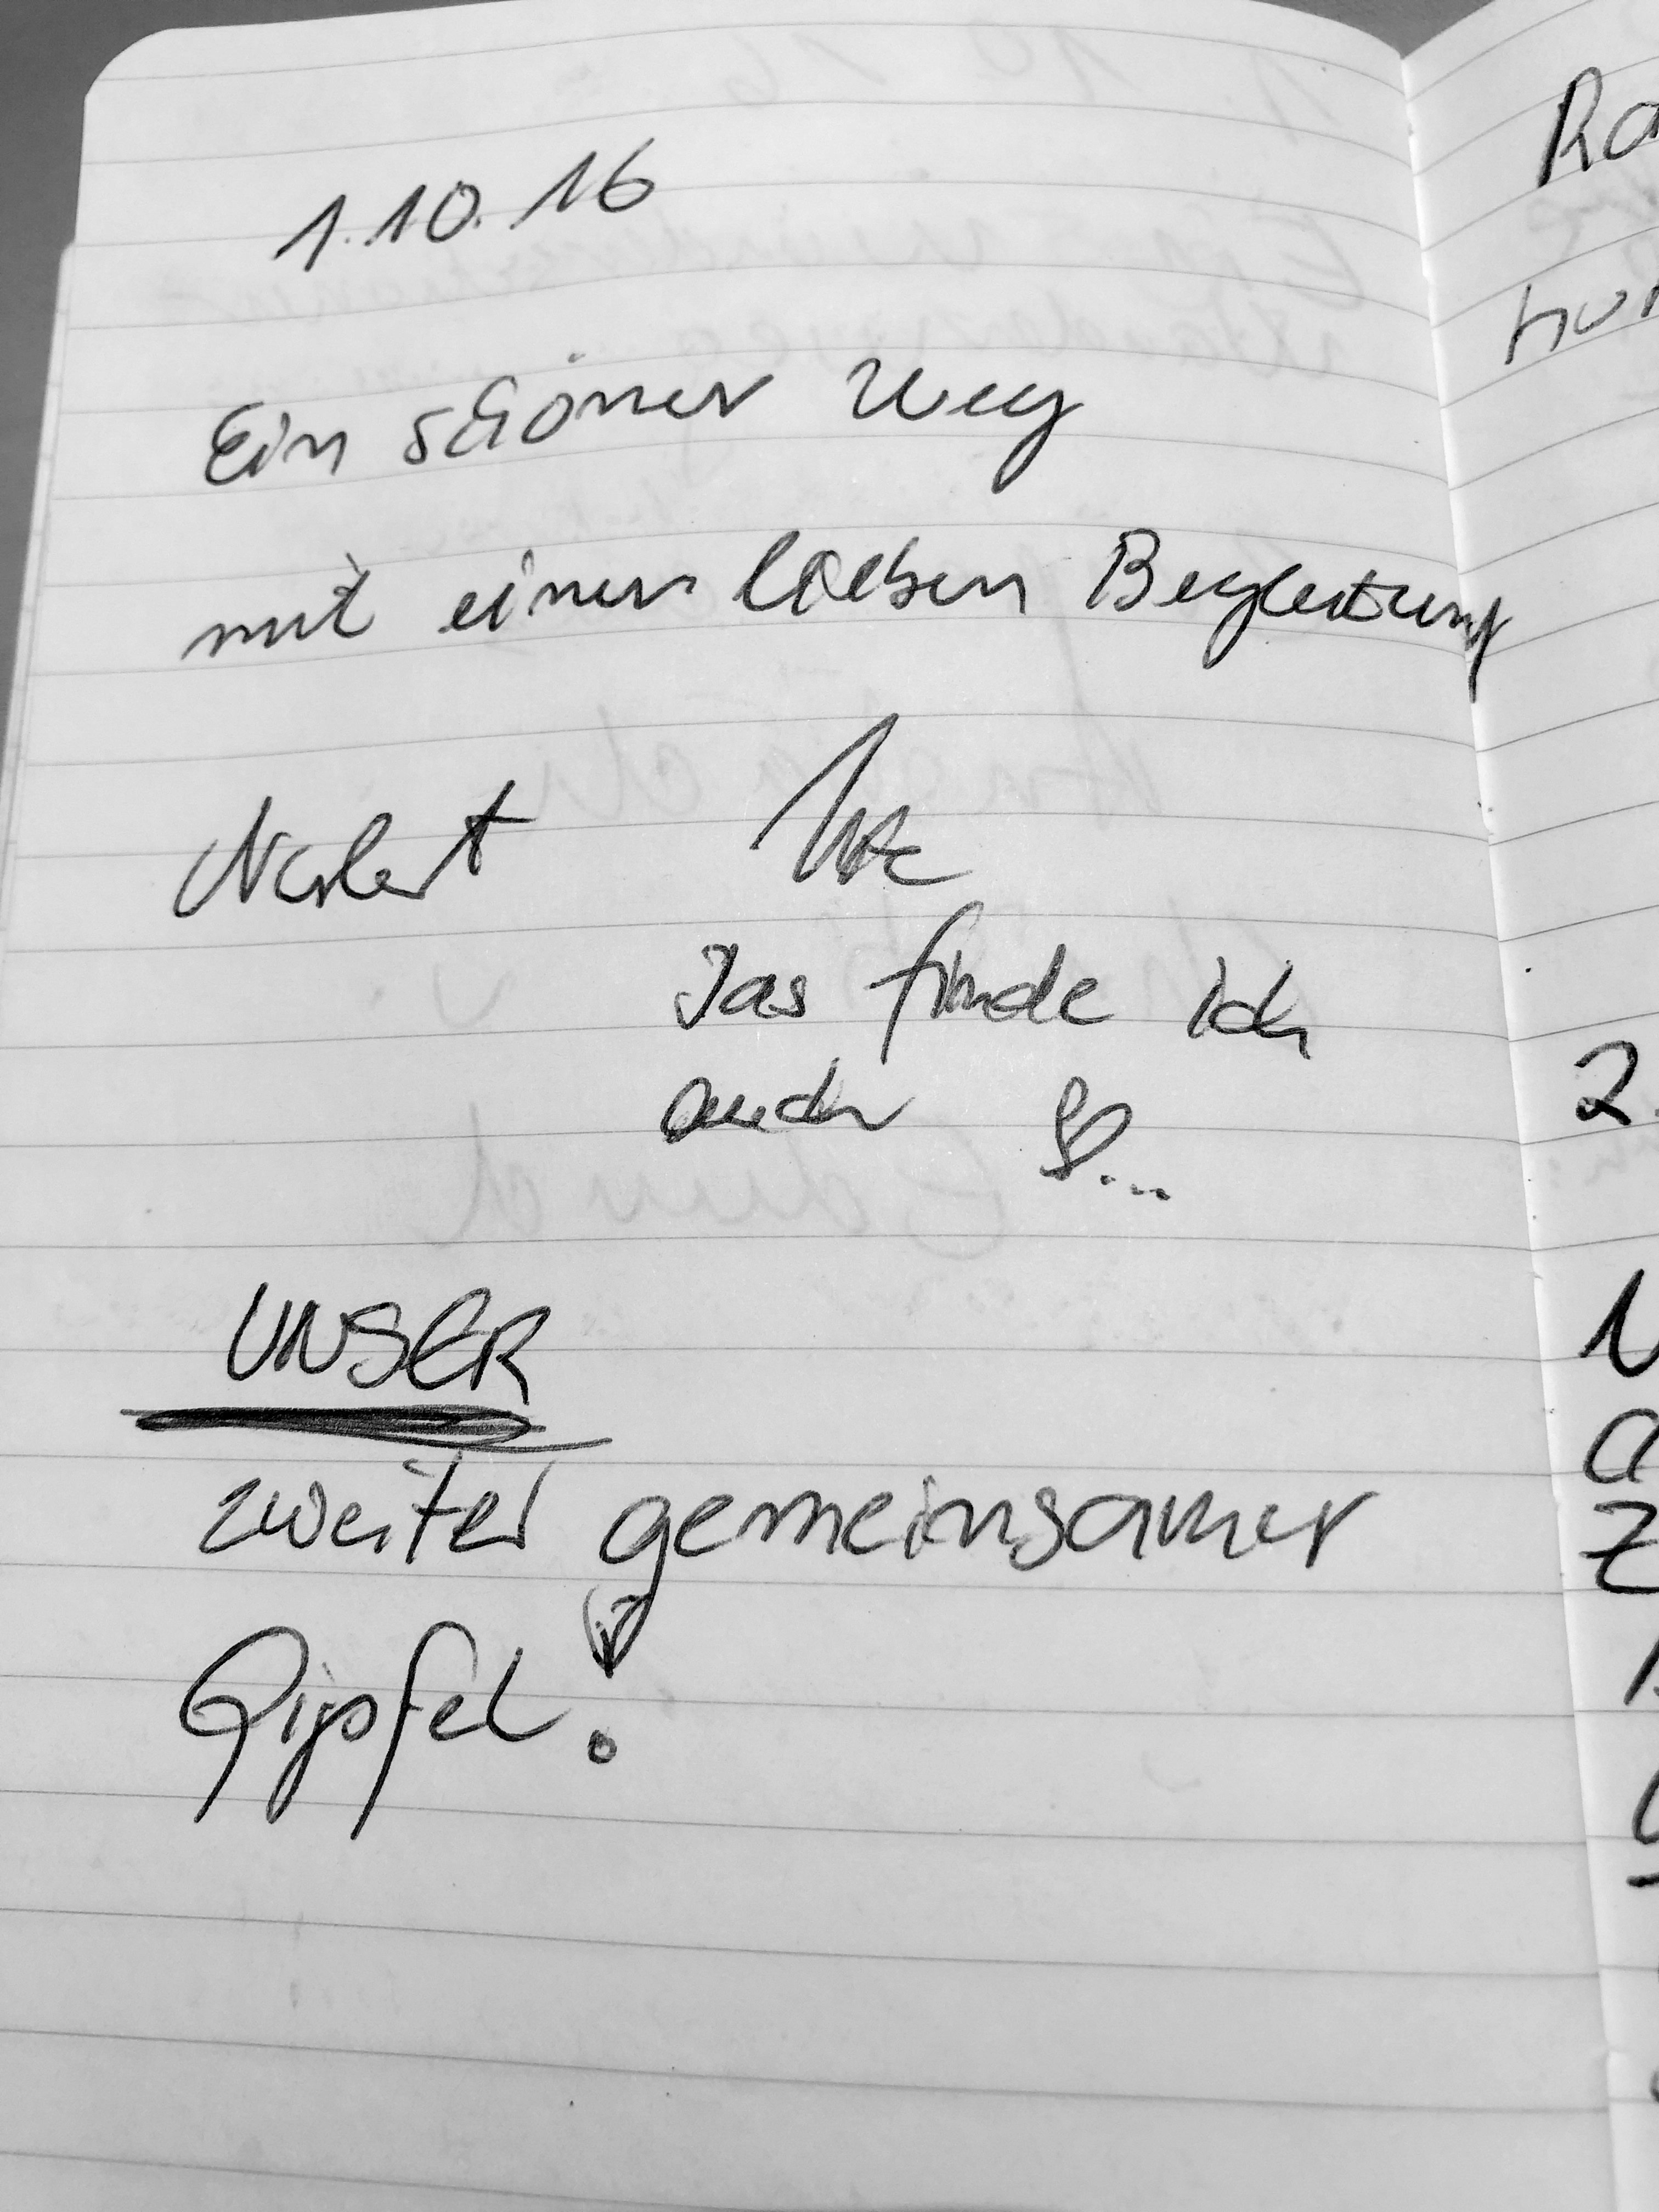 1.10.16
Ein schöner Weg
mit einer lieben Begleitung
Norbert
Das finde ich
auch ♡...
UNSER
zweiter gemeinsamer
Gipfel!
Ra
2.